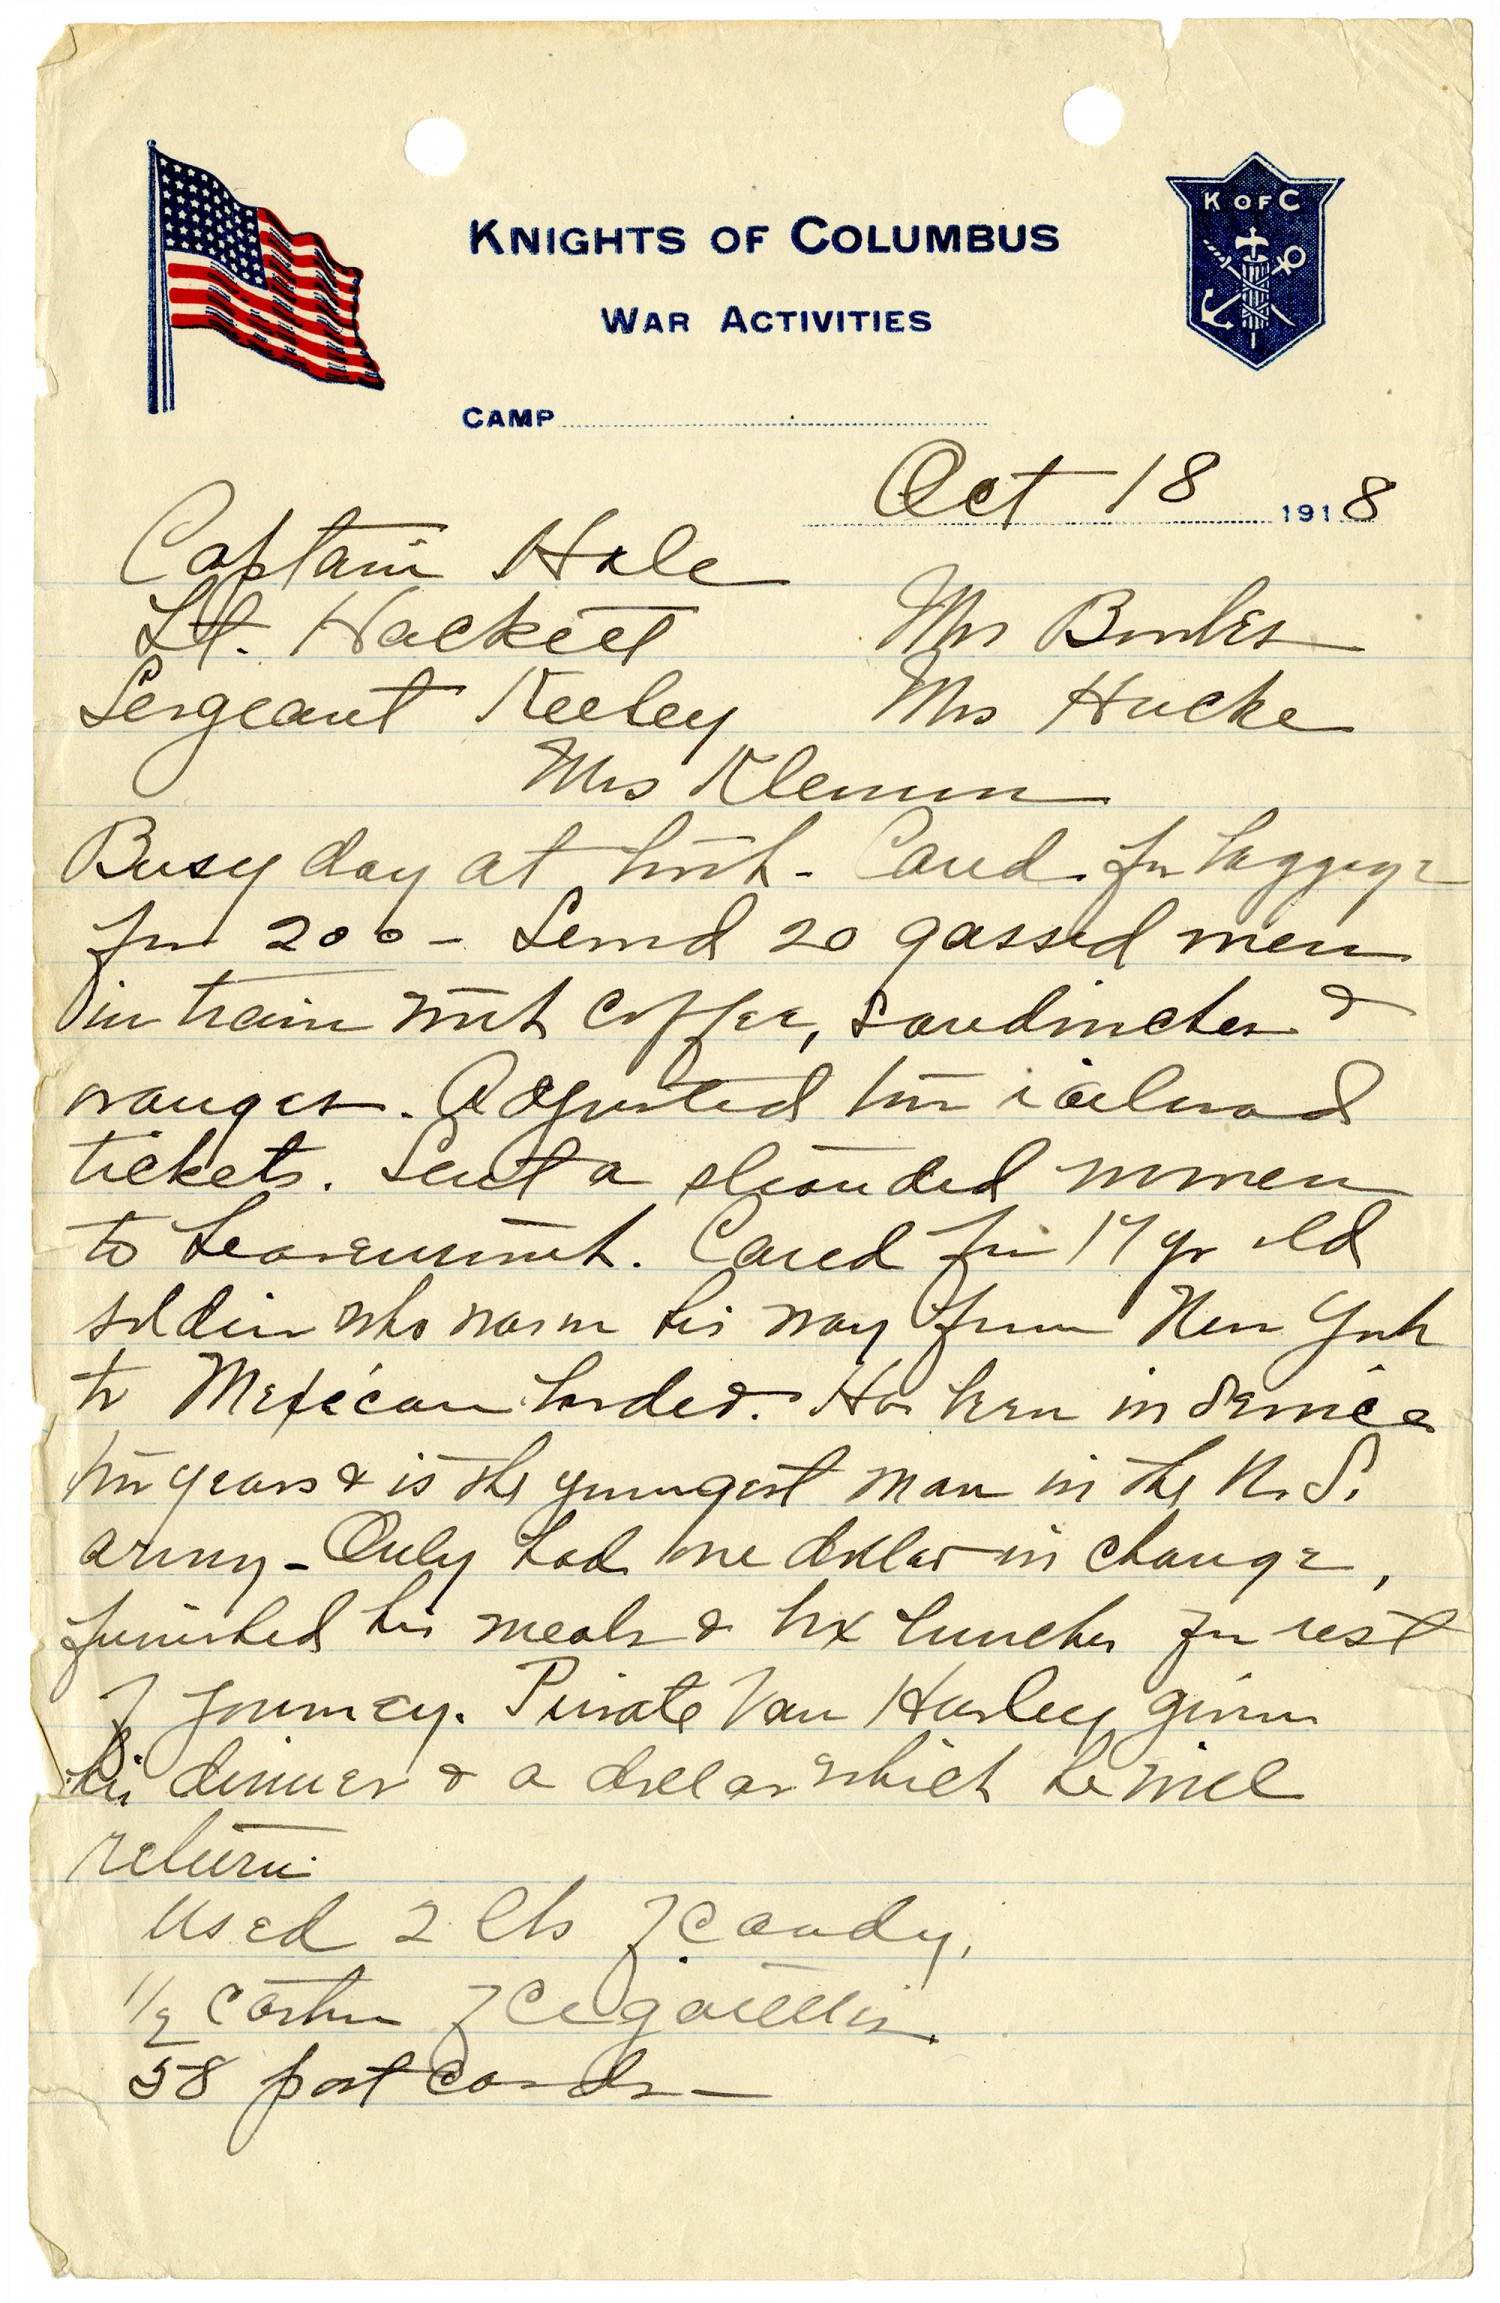 K OF C
KNIGHTS OF COLUMBUS
WAR ACTIVITIES
CAMP
Oct 18 1918
Captain Hale
Lt. Hackett Mrs
Sergeant Keeley Mrs Hucke
Mrs Klemm
Busy day at booth - Cared for baggage
for 200 - Served 20 gassed men
in train with coffee, sandwiches &
oranges. Adjusted two railroad
tickets. Sent a stranded women
to Leavenworth. Cared for 17 yr old
soldier who was on his way from New York
to Mexican border. Has been in service
two years & is the youngest man in the U.S.
army - Only had one dollar in change,
furnished his meals & box lunches for rest
of journey. Private Van Hurley given
his dinner & a dollar which he will
return.
Used 2 lbs of candy,
1/2 carton of cigarettes.
58 post cards -